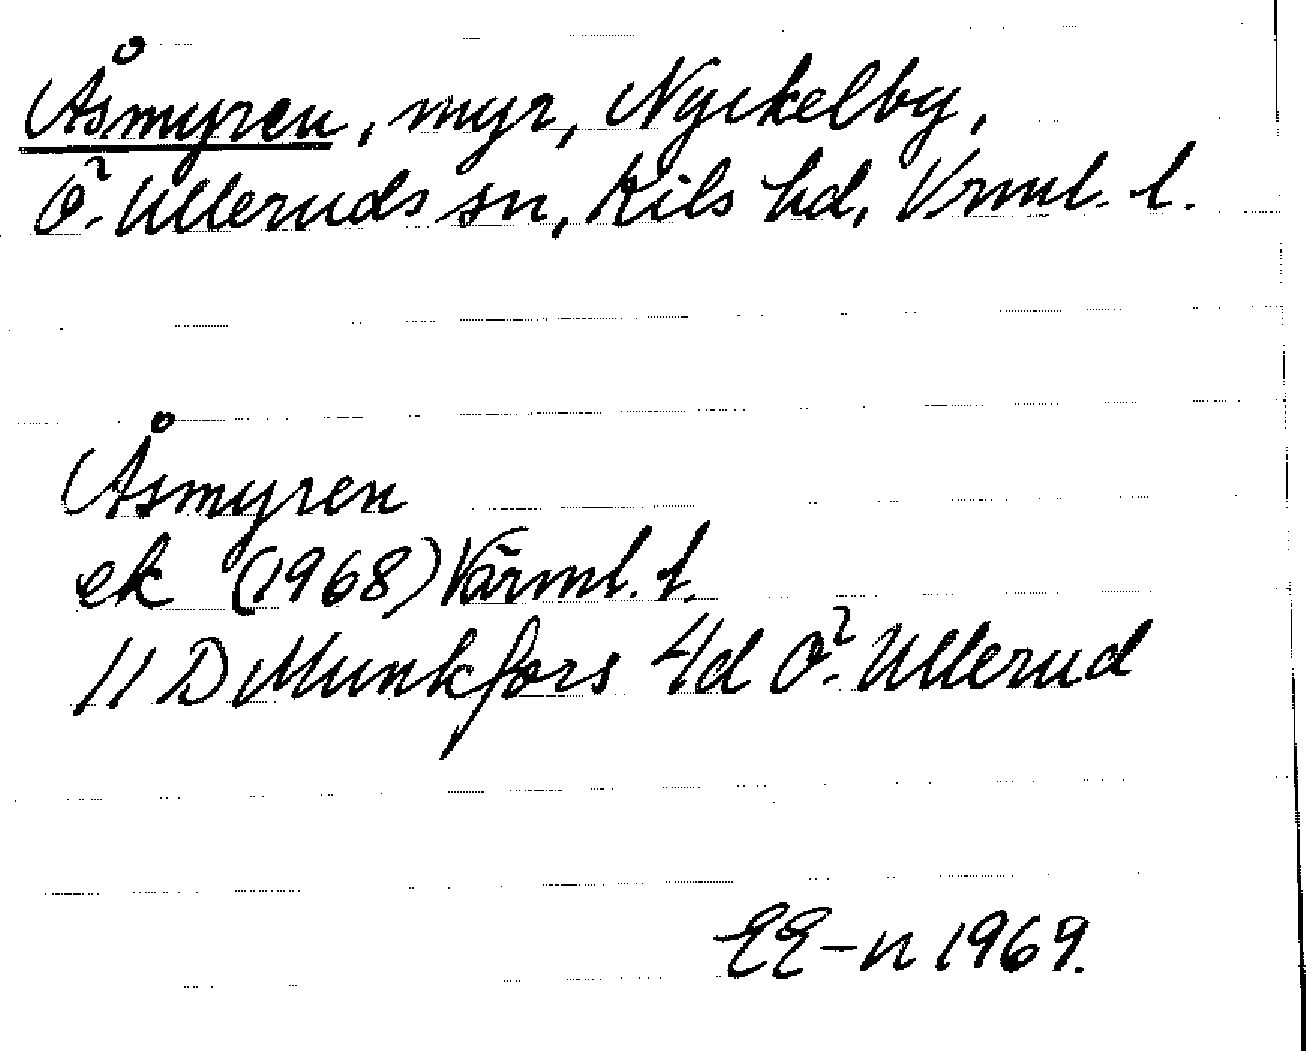 Åsmyren, myr, Nyckelby,
Ö. Ulleruds sn, Kils hd, Vrml. l.
Åsmyren
ek (1968) Värml. l.
11 D Munkfors 4d Ö. Ullerud
EE-n 1969.